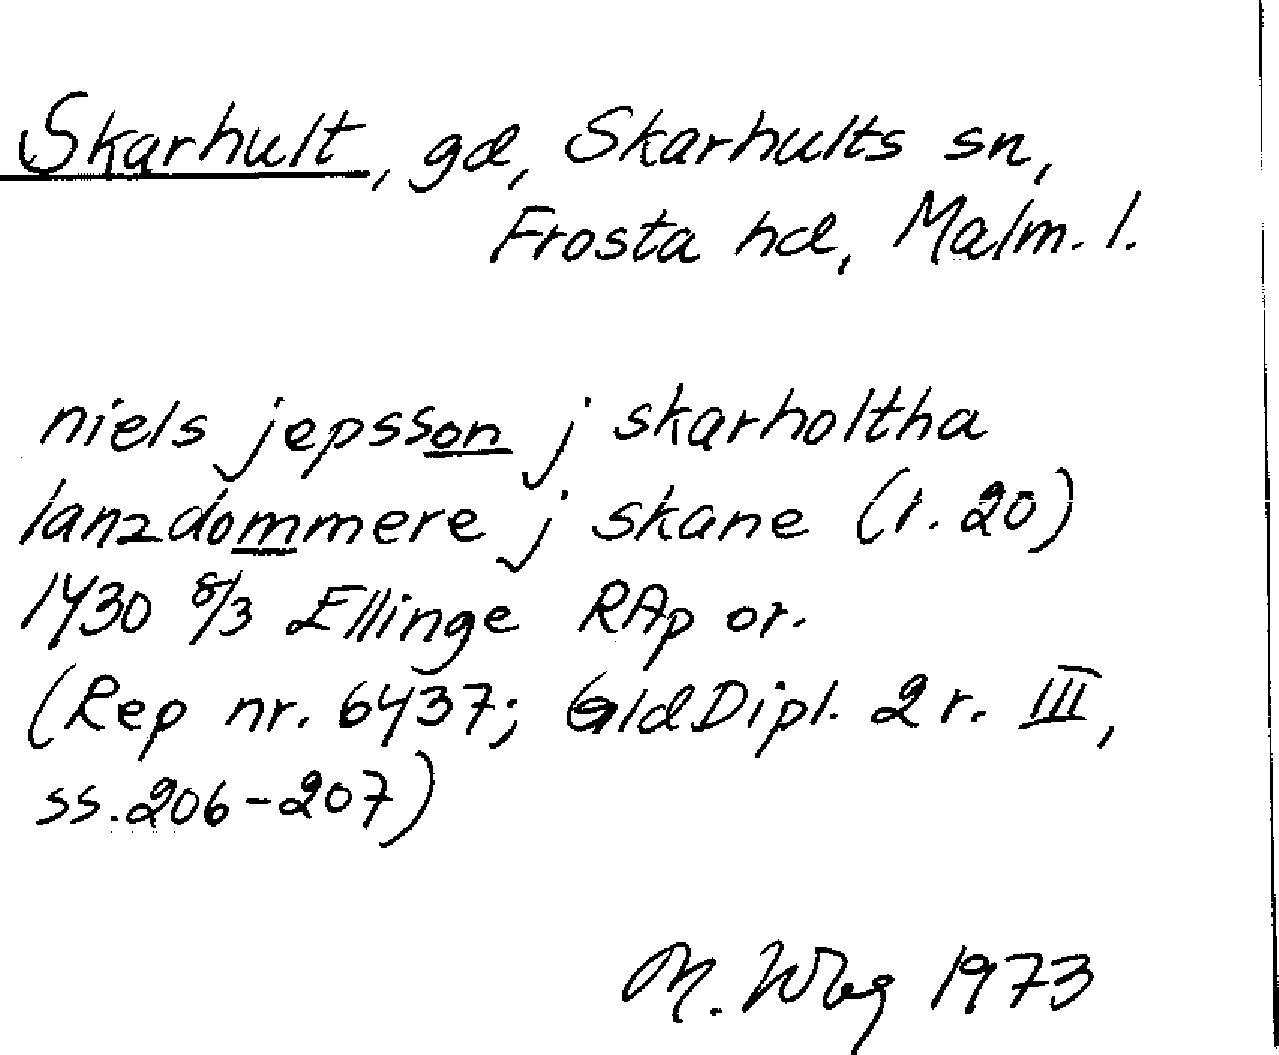 Skarhult, gd, Skarhults sn,
Frosta hd, Malm. l.
niels jepsson j skarholtha
lanzdommere j skane (l. 20)
1430 8/3 Ellinge RAp or.
(Rep nr. 6437; GldDipl. 2 r. III,
ss. 206-207)
M. Wbg 1973